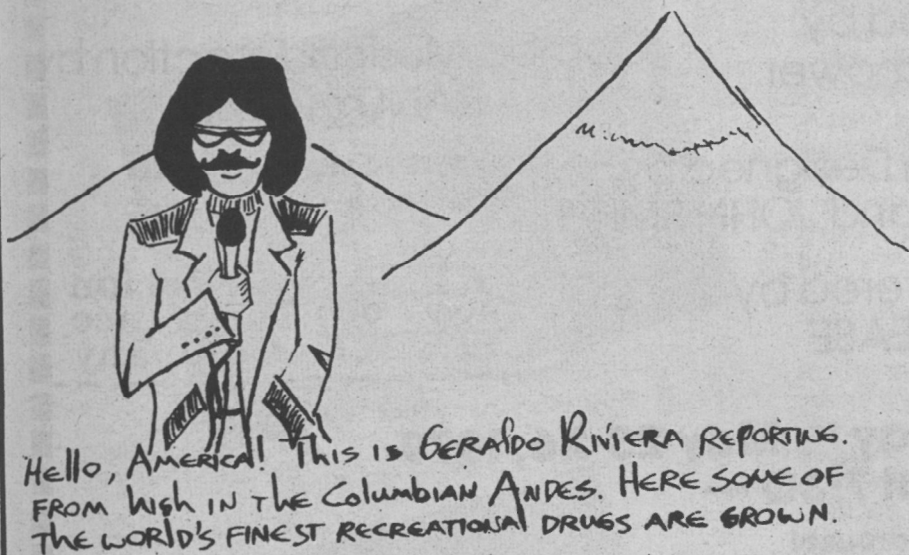 Hello, AMERICA! THIS IS GERALDO RIVIERA REPORTING.
FROM high IN THE Columbian ANDES. HERE SOME OF
THE WORLD'S FINEST RECREATIONAL DRUGS ARE GROWN.